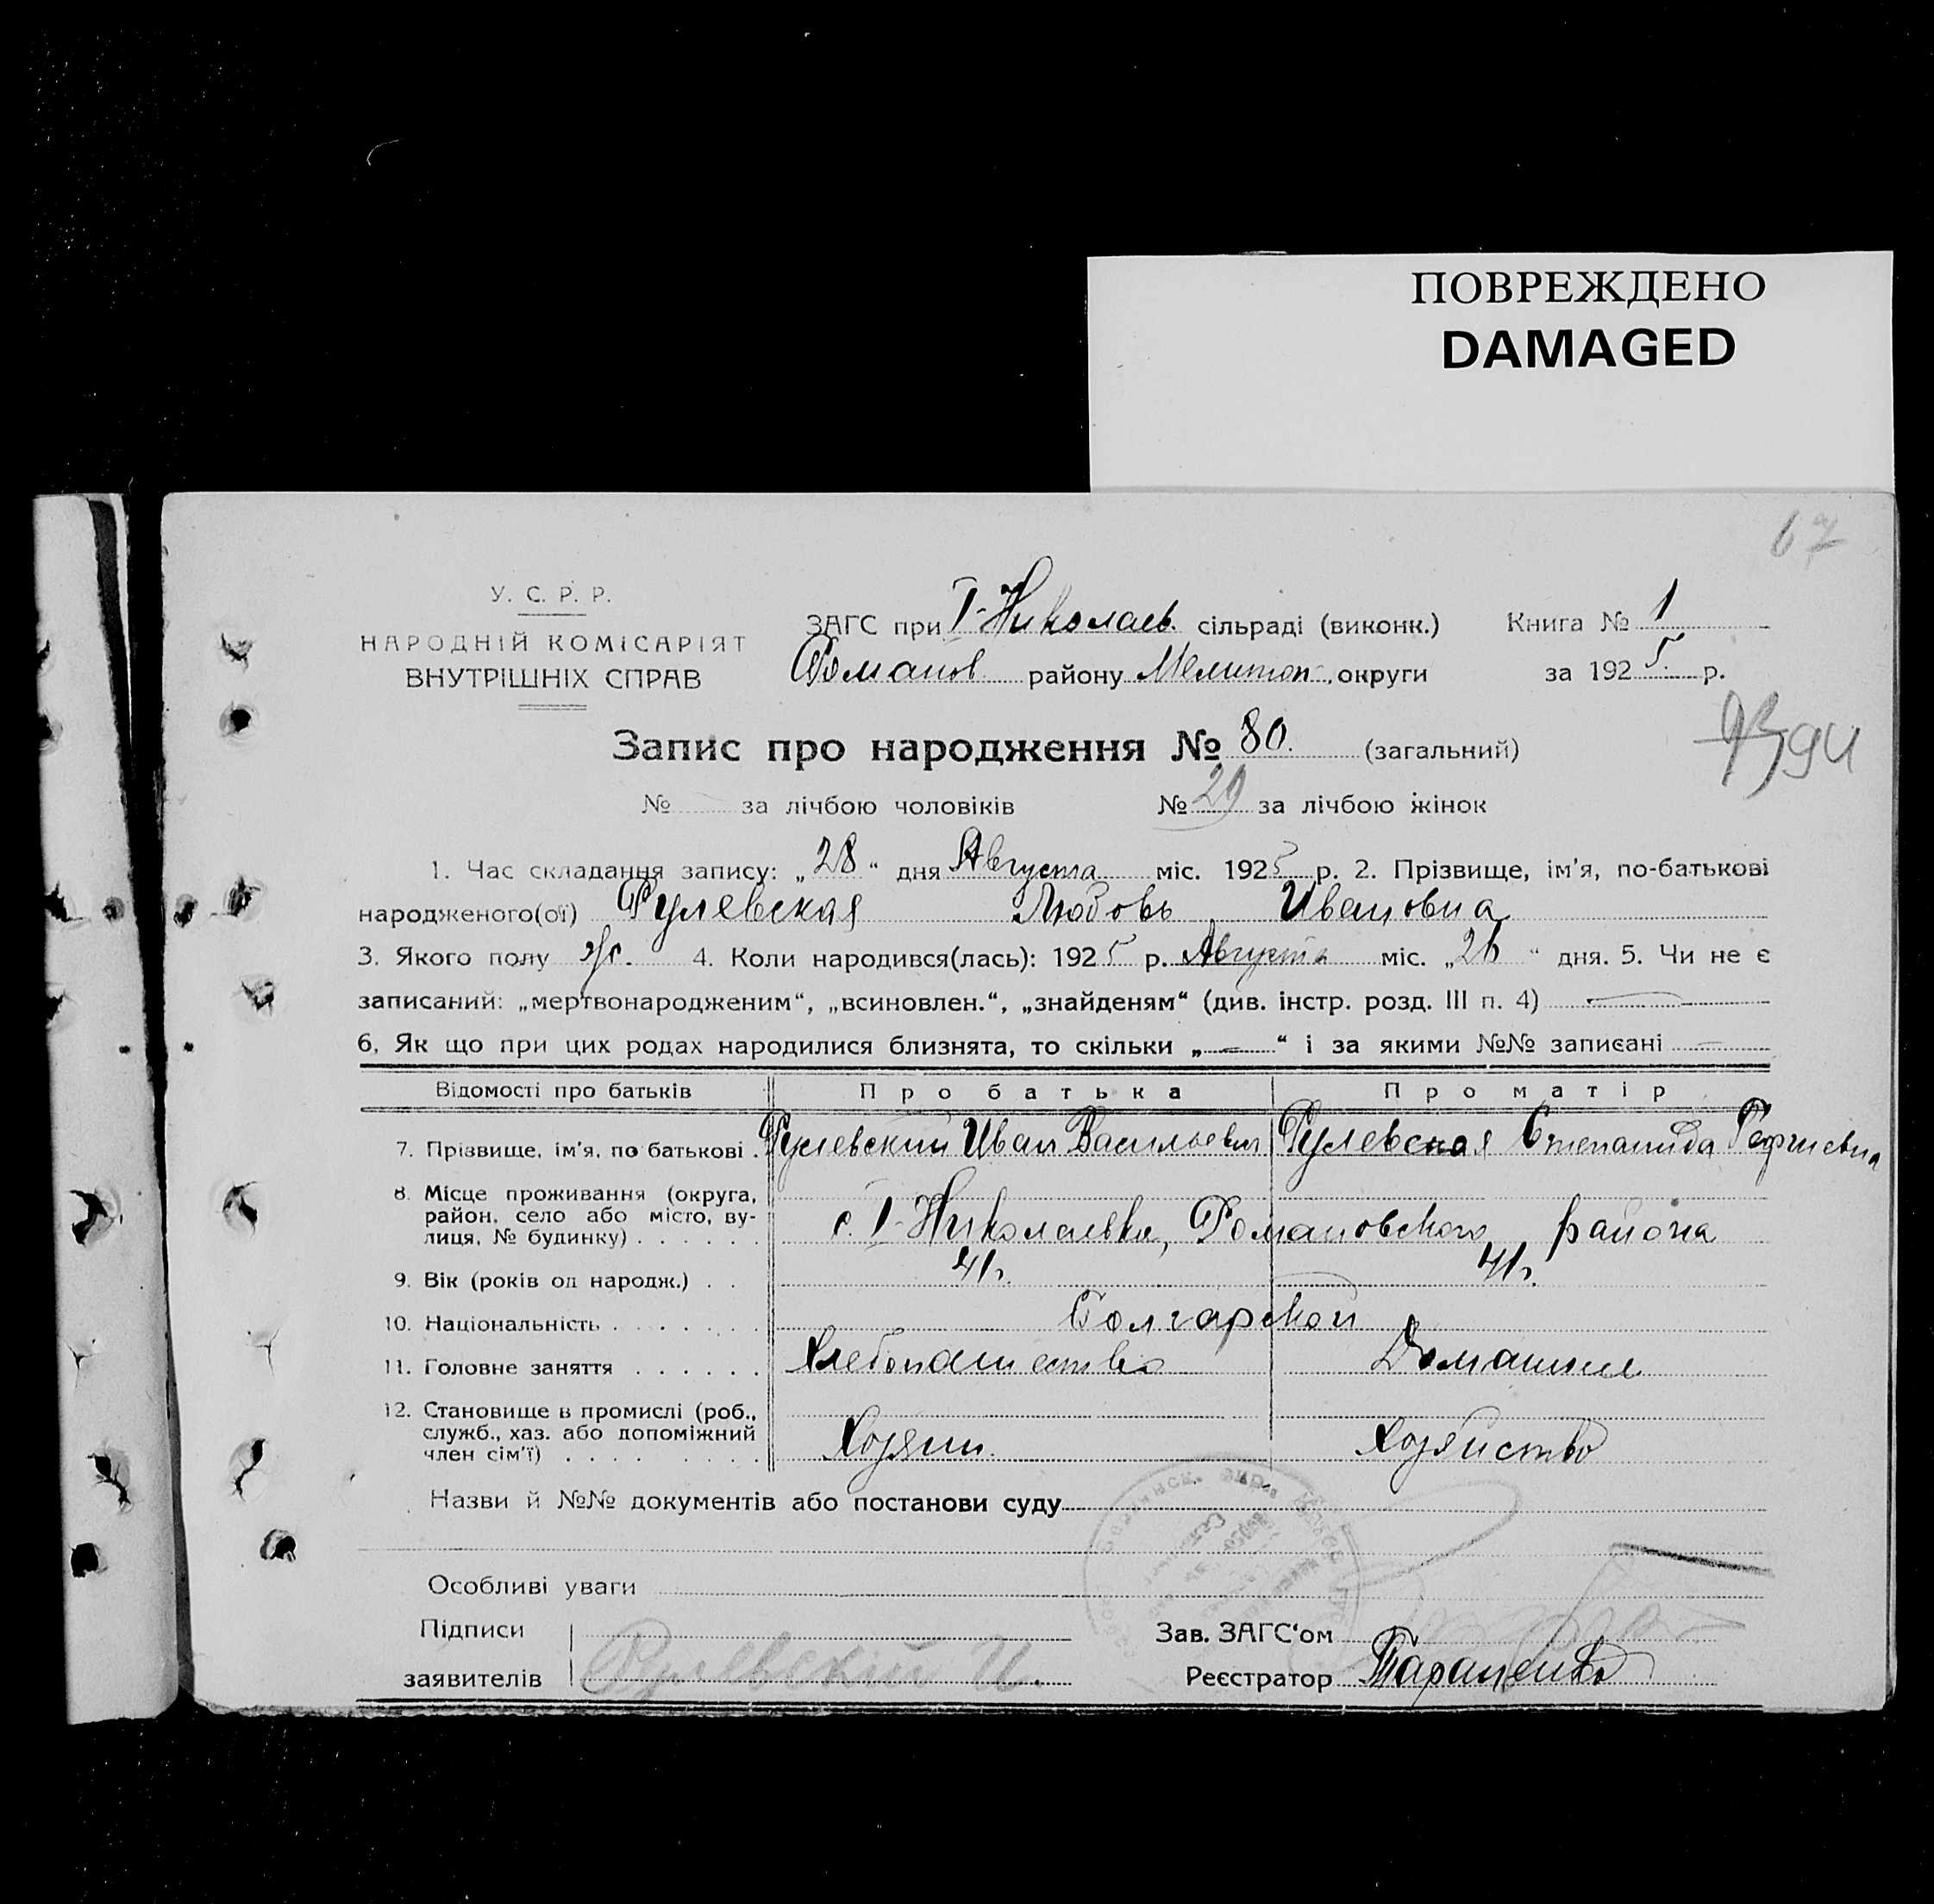 ПОВРЕЖДЕНО
DAMAGED
67
У. С. Р. Р.
НАРОДНІЙ КОМІСАРІЯТ
ВНУТРІШНІХ СПРАВ
ЗАГС при I-Николаев. сільраді (виконк.) Книга № 1
Романов. району Мелитоп. округи за 1925 р.
Запис про народження № 80. (загальний)
93 94
№ за лічбою чоловіків № 29 за лічбою жінок
1. Час складання запису: „28“ дня Августа міс. 1925 р. 2. Прізвище, ім'я, по-батькові
народженого(ої) Рулевская Любовь Ивановна
3. Якого полу ж. 4. Коли народився(лась): 1925 р. Августа міс. „26“ дня. 5. Чи не є
записаний: „мертвонародженим“, „всиновлен.“, „знайденям“ (див. інстр. розд. III п. 4) —
6. Як що при цих родах народилися близнята, то скільки „—“ і за якими №№ записані —
Відомості про батьків Про батька Про матір
7. Прізвище, ім'я, по батькові . Рулевский Иван Васильевич Рулевская Степанида Георгиевна
8. Місце проживання (округа,
район, село або місто, ву-
лиця, № будинку) . . . . . . с. I-Николаевка, Романовского района
9. Вік (років од народж.) . . 41 г. 41 г.
10. Національність . . . . . . . Болгарской
11. Головне заняття . . . . . . Хлебопашество Домашнее
12. Становище в промислі (роб.,
служб., хаз. або допоміжний
член сім'ї) . . . . . . . . . Хозяин. Хозяйство
Назви й №№ документів або постанови суду
Особливі уваги
Підписи Зав. ЗАГС'ом
заявителів Рулевский И. Реєстратор Тараненко